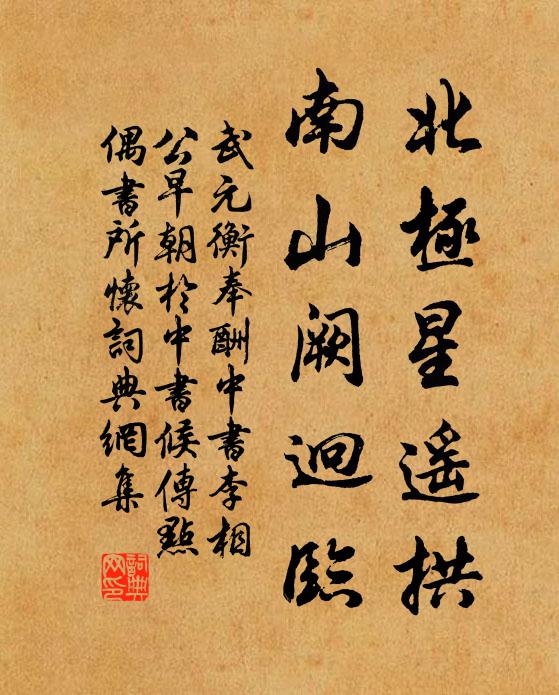 北極星遥拱
南山闕迥臨
武元衡奉酬中書李相
公早朝於中書候傳點
偶書所懷詞典網集
詞典网印